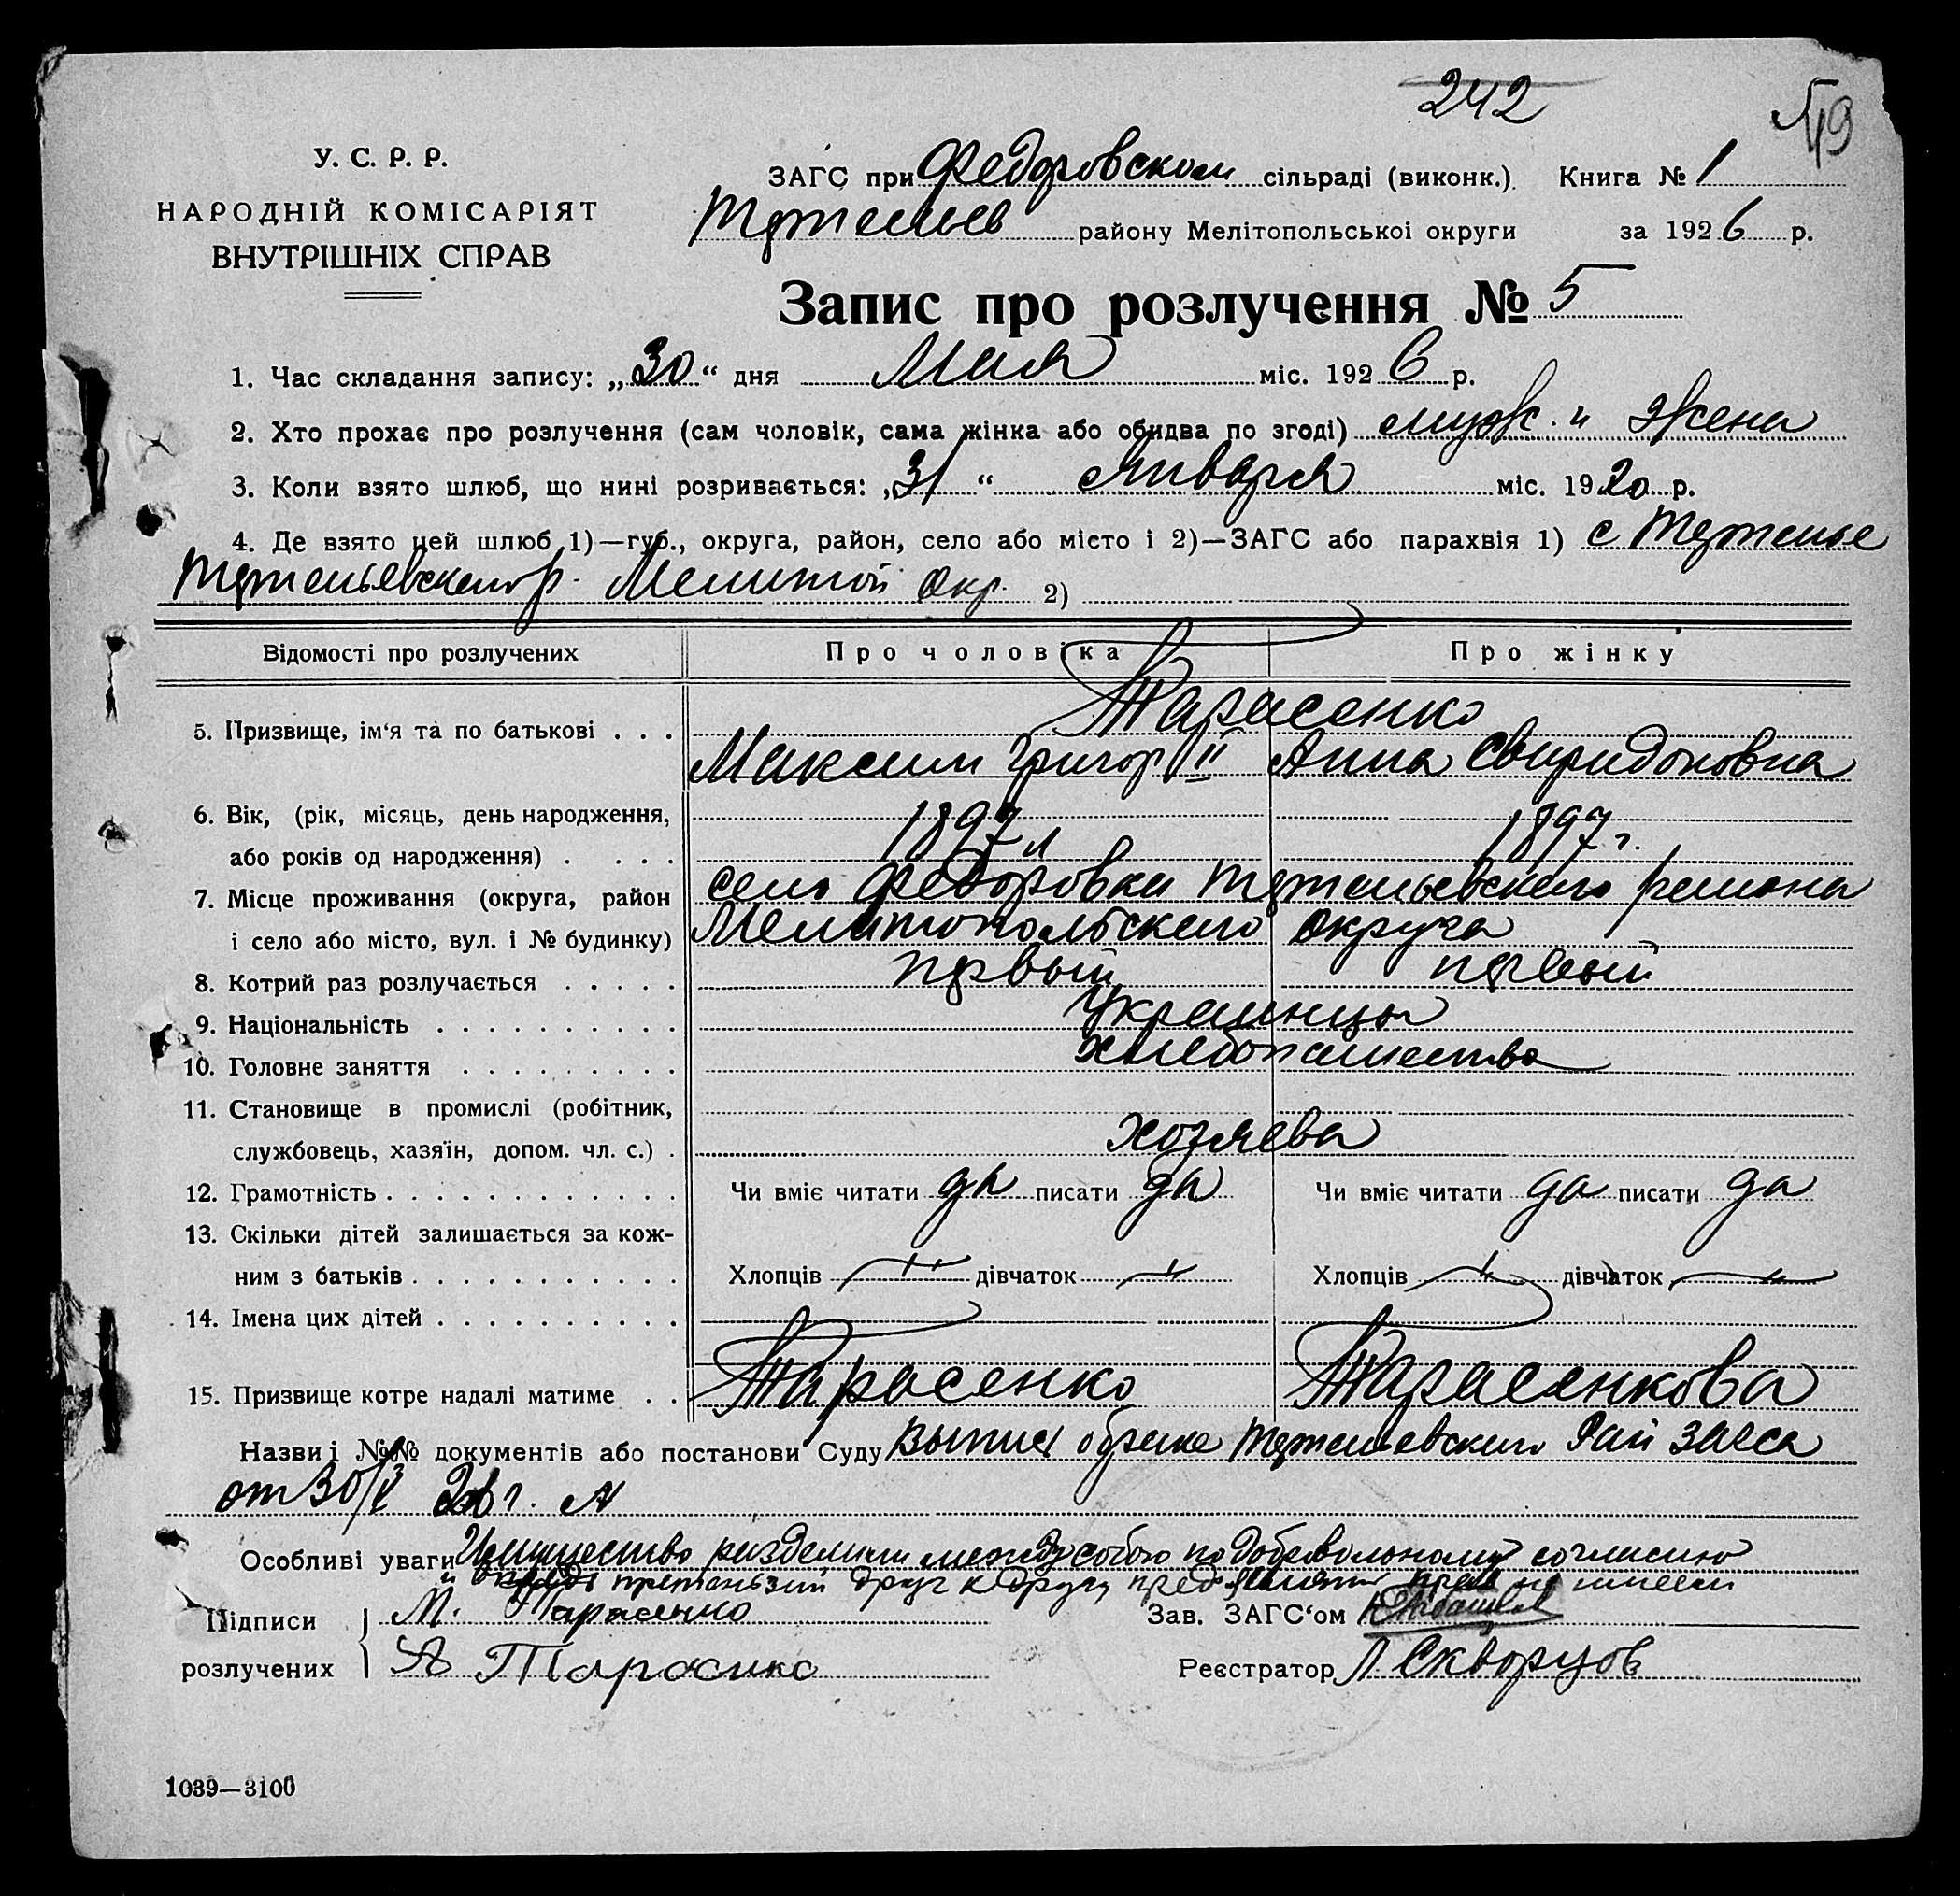 242
У. С. Р. Р.
НАРОДНІЙ КОМІСАРІЯТ
ВНУТРІШНІХ СПРАВ
ЗАГС при Федоровском сільраді (виконк.). Книга № 1
району Мелітопольської округи за 1926 р.
Запис про розлучення № 5
1. Час складання запису: „30“ дня Мая міс. 1926 р.
2. Хто прохає про розлучення (сам чоловік, сама жінка або обидва по згоді) муж. и жена
3. Коли взято шлюб, що нині розривається: „31“ Января міс. 1920 р.
4. Де взято цей шлюб 1)—губ., округа, район, село або місто і 2)—ЗАГС або парахвія 1) с
Окр. 2)
Відомості про розлучених Про чоловіка Про жінку
Тарасенко
5. Призвище, ім‘я та по батькові . . .
Максим Григор II Анна Свиридоновна
6. Вік, (рік, місяць, день народження,
або років од народження) . . . . 1897 1897 г.
7. Місце проживання (округа, район село Федоровка района
і село або місто, вул. і № будинку) Мелитопольского округа
8. Котрий раз розлучається . . . . . первый первый
9. Національність . . . . . . . . . . Украинцы
10. Головне заняття . . . . . . . . . хлебопашество
11. Становище в промислі (робітник,
службовець, хазяїн, допом. чл. с.) . хозяева
12. Грамотність . . . . . . . . . . . . Чи вміє читати да писати да Чи вміє читати да писати да
13. Скільки дітей залишається за кож-
ним з батьків . . . . . . . . . . . Хлопців — дівчаток — Хлопців — дівчаток —
14. Імена цих дітей . . . . . . . . . .
15. Призвище котре надалі матиме . . Тарасенко Тарасенкова
Назви і №№ документів або постанови Суду Рай загса
от 30/V 26 г. №
Особливі уваги Имущество разделили между собою по добровольному согласию
и претензий друг к другу не имеем
Підписи М. Тарасенко Зав. ЗАГС‘ом
розлучених А Тарасинко Реєстратор Л. Скворцов
1039—3100